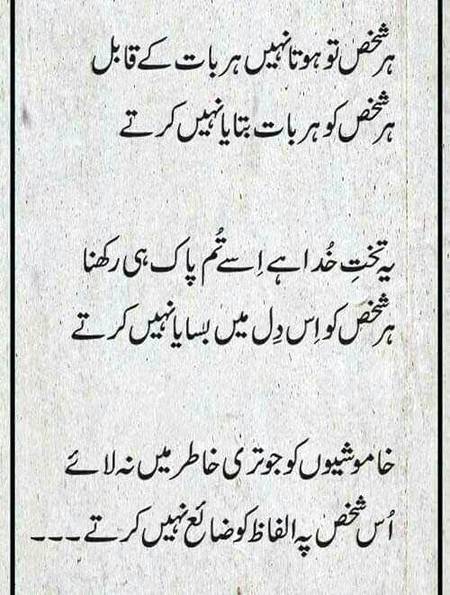 ہر شخص تو ہوتا نہیں ہر بات کے قابل
ہر شخص کو ہر بات بتایا نہیں کرتے
یہ تختِ خُدا ہے اِسے تُم پاک ہی رکھنا
ہر شخص کو اِس دِل میں بسایا نہیں کرتے
خاموشیوں کو جو تری خاطر میں نہ لائے
اُس شخص پہ الفاظ کو ضائع نہیں کرتے ۔۔۔